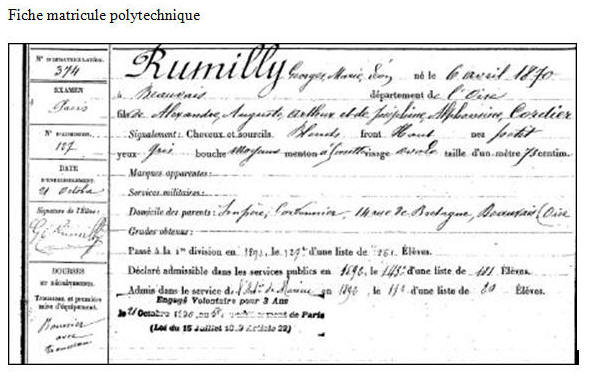 Fiche matricule polytechnique
N° D'IMMATRICULATION.
374
EXAMEN
Paris
N° D'ADMISSION.
127
DATE
D'ENREGISTREMENT.
21 Octobre
Signature de l'Élève:
G. Rumilly
BOURSES
ET DÉGRÈVEMENTS.
TROUSSEAU, ET PREMIÈRE
mise d'équipement.
Boursier
avec
trousseau
Rumilly Georges, Marie, Léon né le 6 avril 1870
à Beauvais département de l'Oise
fils de Alexandre, Auguste, Arthur et de Joséphine, Alphonsine, Cordier
Signalement: Cheveux et sourcils Blonds front Haut nez petit
yeux gris bouche moyenne menton à fossette visage ovale taille d'un mètre 73 centim.
Marques apparentes:
Services militaires:
Domicile des parents: Son père, 14 rue de Bretagne, Beauvais (Oise
Grades obtenus:
Passé à la 1re division en 1891, le 129e d'une liste de 261 Élèves.
Déclaré admissible dans les services publics en 1892, le 143e d'une liste de 181 Élèves.
Admis dans le service de l'Art. de Marine en 1892, le 11e d'une liste de 20 Élèves.
Engagé Volontaire pour 3 Ans
le 21 Octobre 1890, au de Paris
(Loi du 15 Juillet 1889 Article 22)